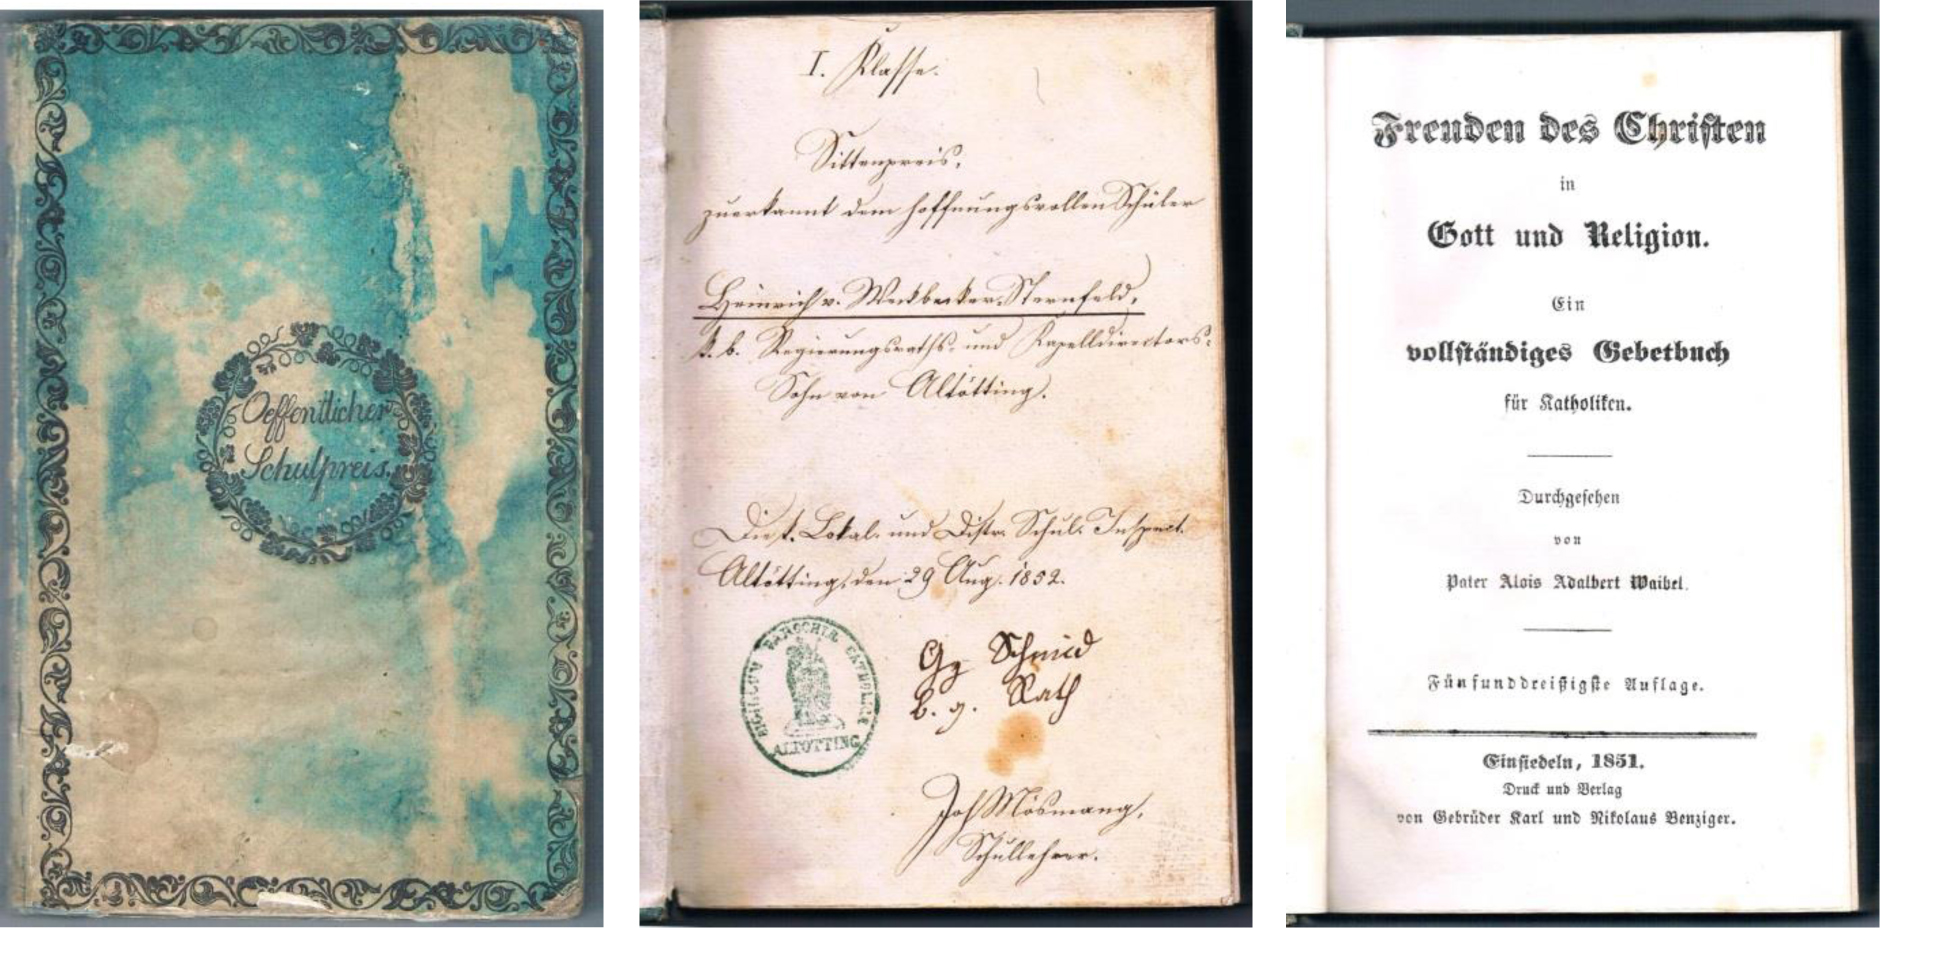 Oeffentlicher
Schulpreis.
I. Klasse.
Sittenpreis,
zuerkannt dem hoffnungsvollen Schüler
Heinrich v. Weckbecker-Sternfeld,
k. b. Regierungsraths- und Kapelldirectors-
Sohn von Altötting.
Lokal- und Distr. Schul-Inspect.
Altötting, den 29 Aug. 1852.
PAROCHIAE CATHOLICAE
ALTÖTTING
Gg Schmid
b. g. Rath
Joh Mösmang,
Schullehrer.
Freuden des Christen
in
Gott und Religion.
Ein
vollständiges Gebetbuch
für Katholiken.
Durchgesehen
von
Pater Alois Adalbert Waibel.
Fünfunddreißigste Auflage.
Einsiedeln, 1851.
Druck und Verlag
von Gebrüder Karl und Nikolaus Benziger.